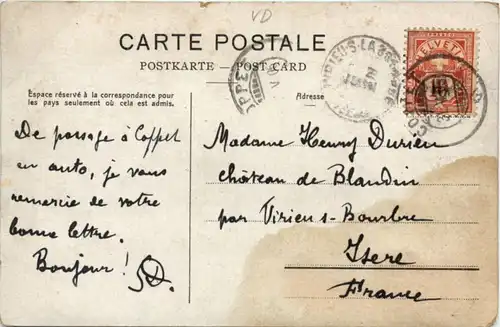 VD
CARTE POSTALE
POSTKARTE - POST CARD
Espace réservé à la correspondance pour
les pays seulement où cela est admis.
Adresse
HELVETIA
10
COPPET
COPPET
De passage à Coppet
en auto, je vous
remercie de votre
bonne lettre.
Bonjour !
Madame Henry Durieu
château de Blandin
par Virieu s-Bourbre
Isere
France